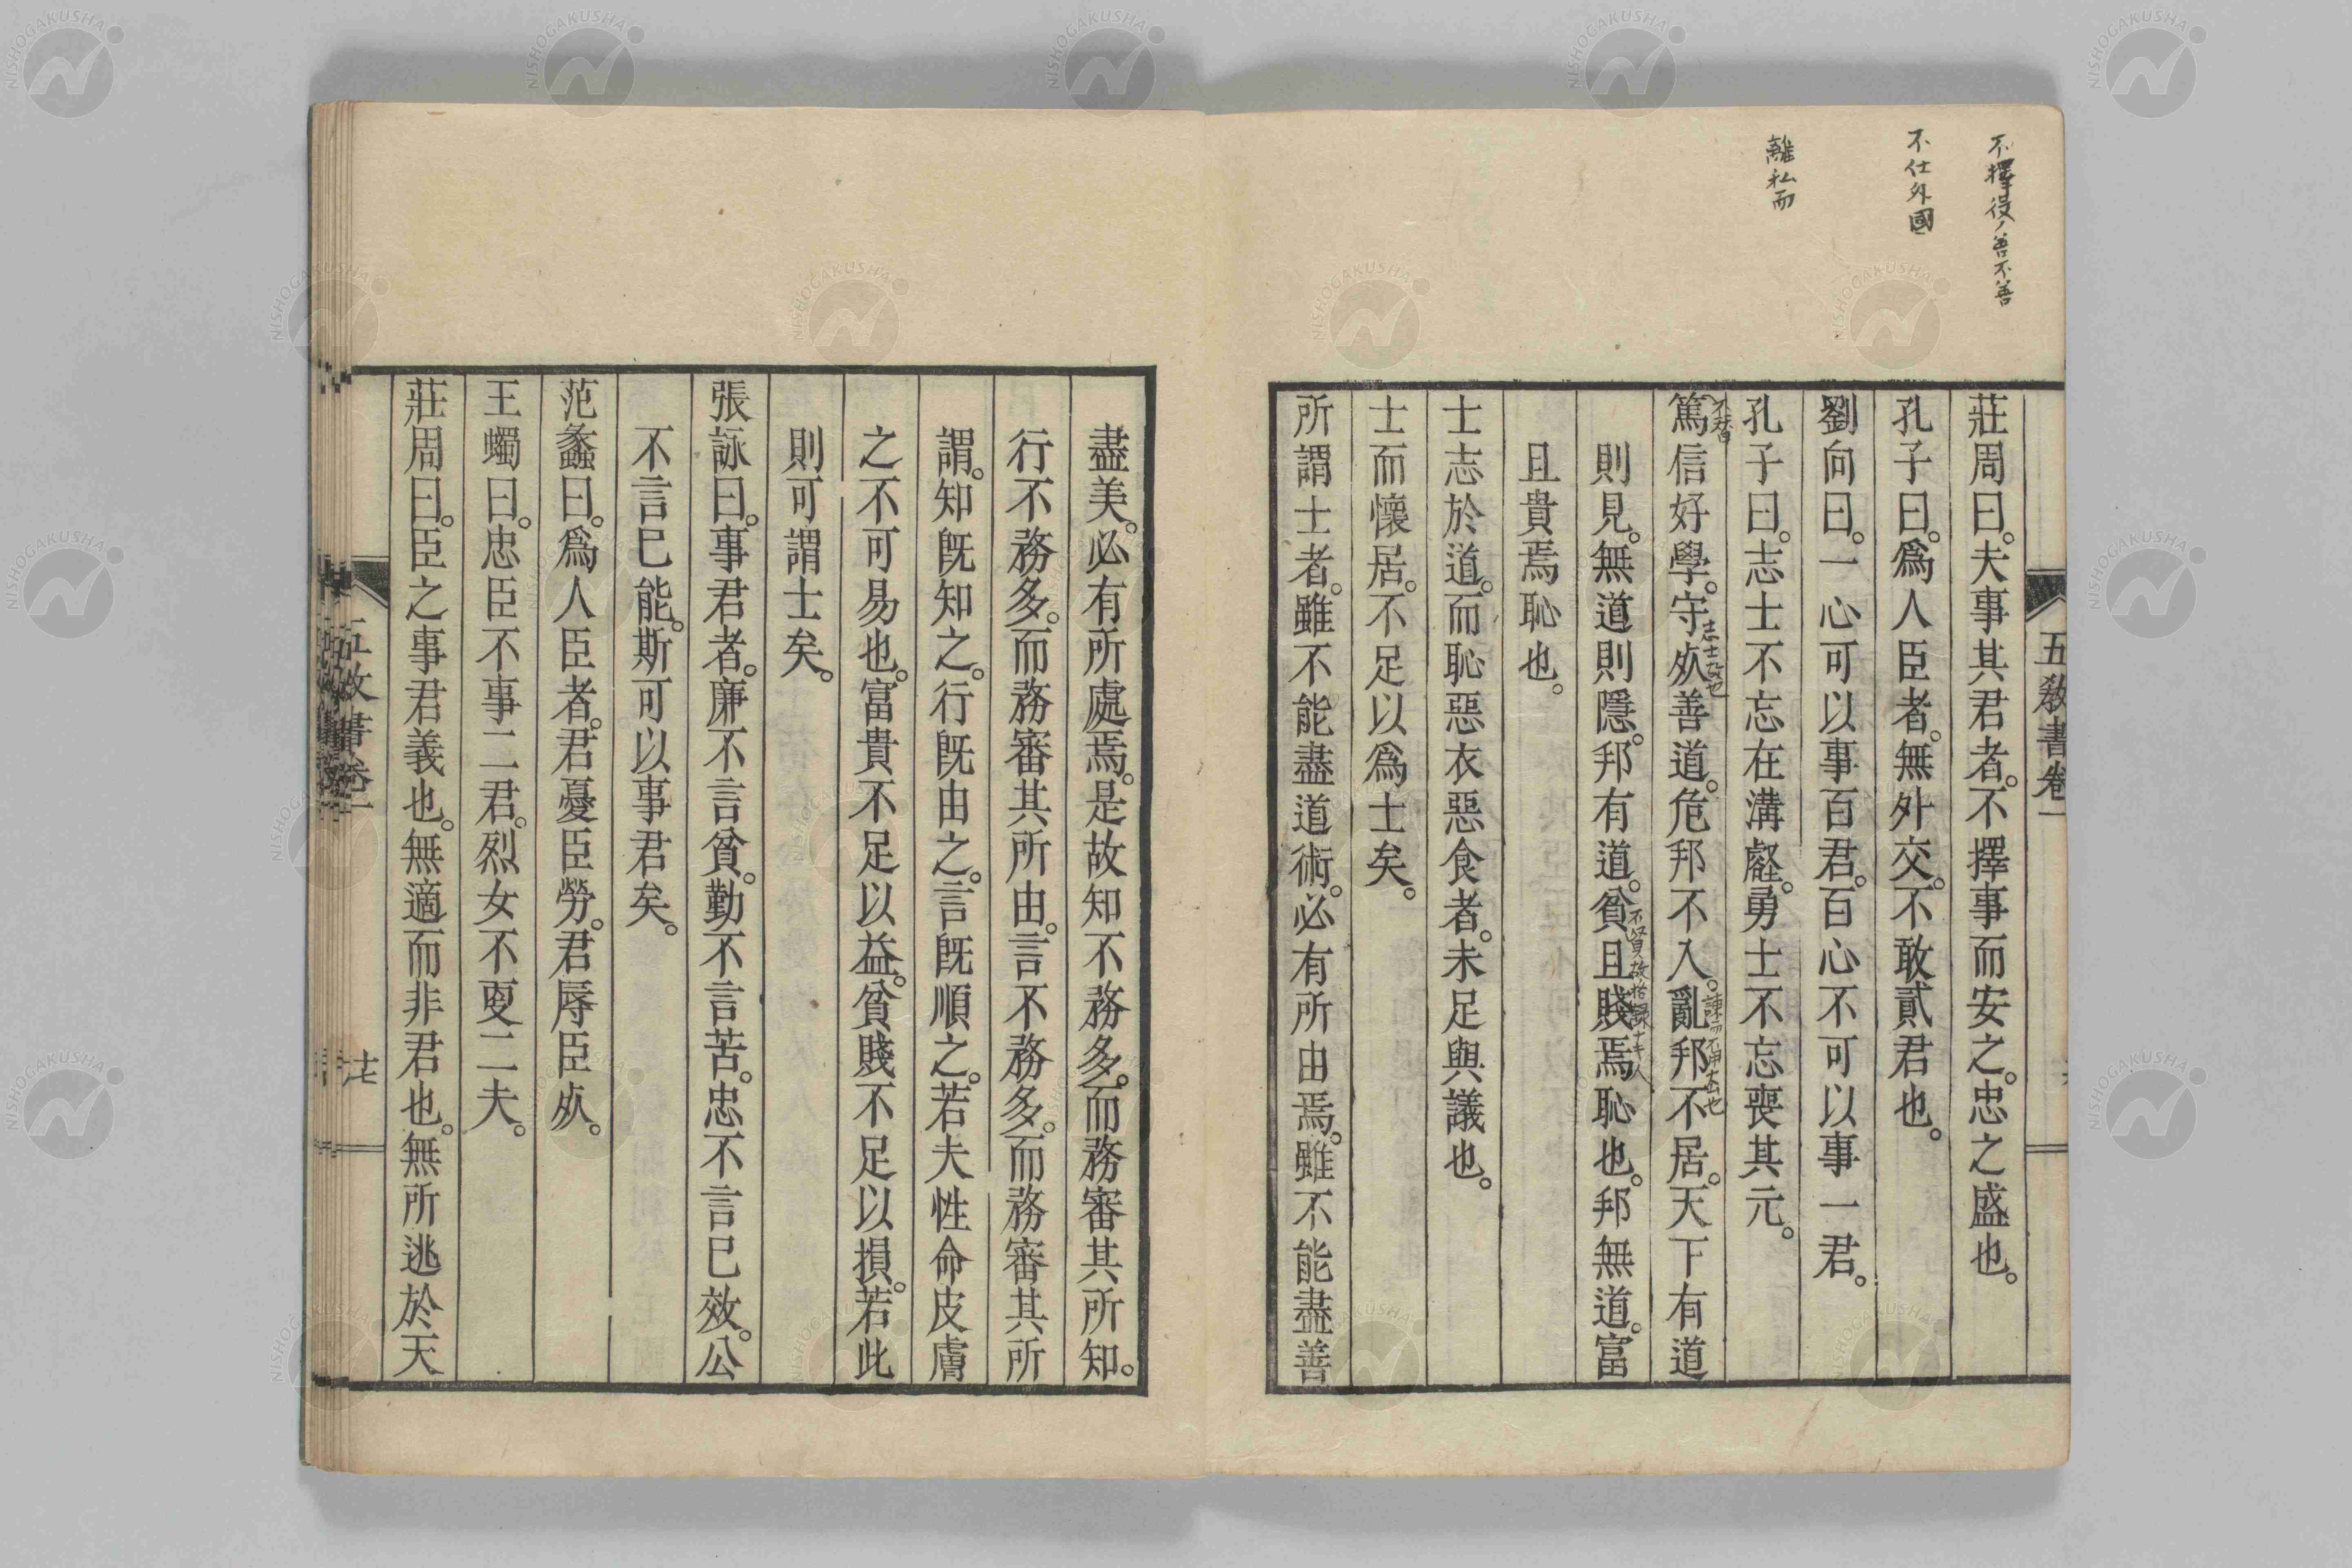 不擇役ノ善不善
不仕外國
離私而
五教書卷一
莊周曰。夫事其君者。不擇事而安之。忠之盛也。
孔子曰。爲人臣者。無外交。不敢貳君也。
劉向曰。一心可以事百君。百心不可以事一君。
孔子曰。志士不忘在溝壑。勇士不忘喪其元。
篤信好學。守𣦸善道。危邦不入。亂邦不居。天下有道
則見。無道則隱。邦有道。貧且賤焉恥也。邦無道。富
且貴焉恥也。
士志於道。而恥惡衣惡食者。未足與議也。
士而懷居。不足以爲士矣。
所謂士者。雖不能盡道術。必有所由焉。雖不能盡善
盡美。必有所處焉。是故知不務多。而務審其所知。
行不務多。而務審其所由。言不務多。而務審其所
謂。知旣知之。行旣由之。言旣順之。若夫性命皮膚
之不可易也。富貴不足以益。貧賤不足以損。若此
則可謂士矣。
張詠曰。事君者。廉不言貧。勤不言苦。忠不言已效。公
不言已能。斯可以事君矣。
范蠡曰。爲人臣者。君憂臣勞。君辱臣𣦸。
王蠋曰。忠臣不事二君。烈女不更二夫。
莊周曰。臣之事君義也。無適而非君也。無所逃於天
五教書卷一
NISHOGAKUSHA